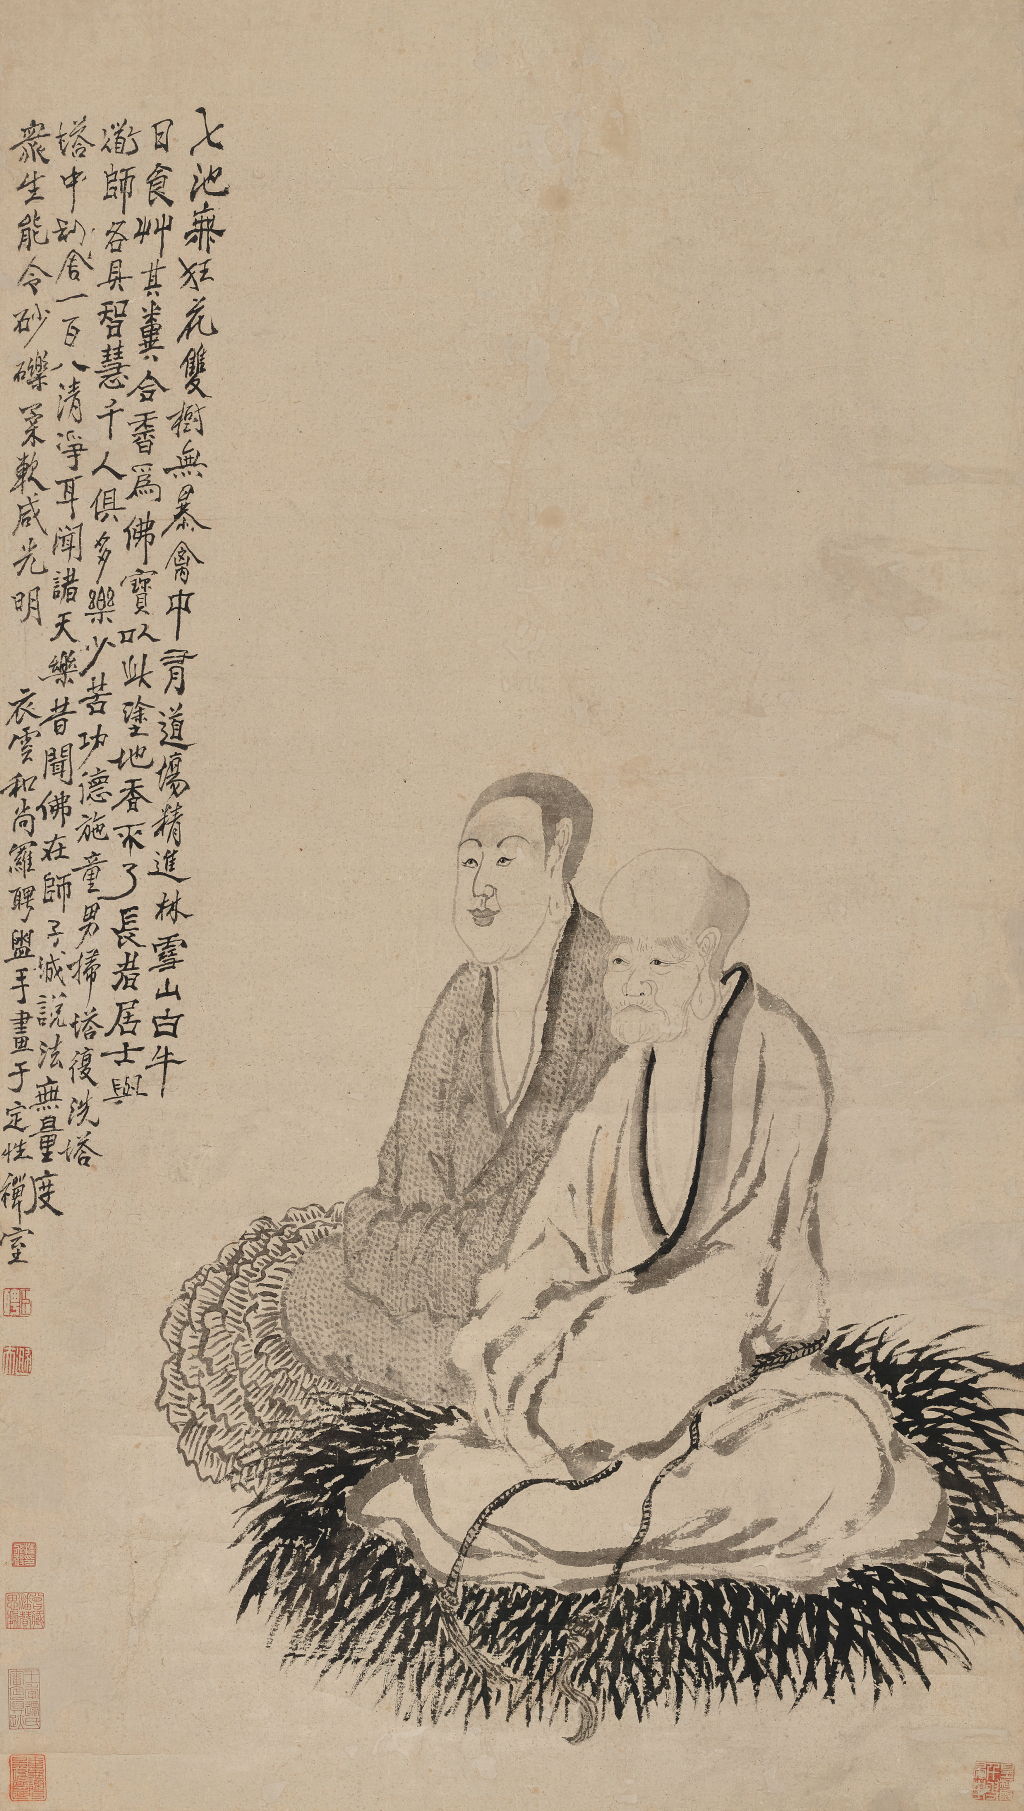 七池無狂花雙樹無暴禽中有道場精進林雪山白牛
日食艸其糞合香為佛寶以此塗地香不了長者居士與
衜師各具智慧千人俱多樂少苦功德施童男掃塔復洗塔
塔中刹舍一百八清淨耳聞諸天樂昔聞佛在師子城說法無量度
衆生能令砂礫柔軟咸光明 衣雲和尚羅聘盥手畫于定性禪室